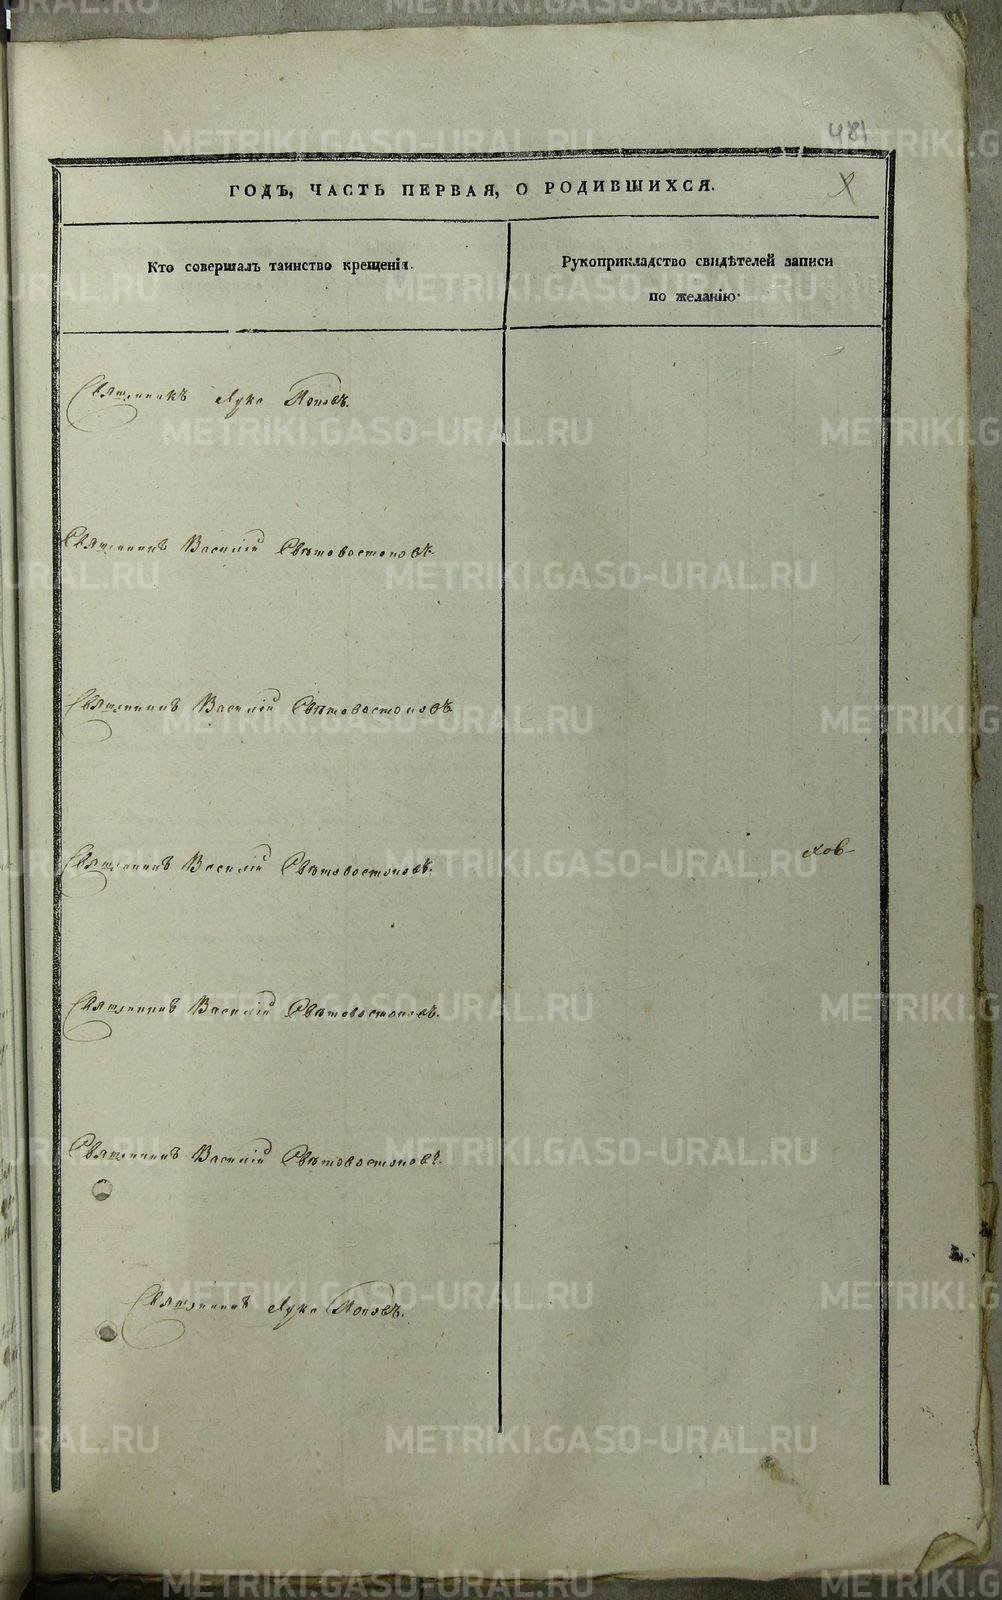 481
ГОДЪ, ЧАСТЬ ПЕРВАЯ, О РОДИВШИХСЯ.
Кто совершалъ таинство крещенія.
Рукоприкладство свидѣтелей записи
по желанію.
Священникъ Лука Поповъ.
Священникъ Василій Свѣтовостоковъ.
Священникъ Василій Свѣтовостоковъ.
Священникъ Василій Свѣтовостоковъ.
Священникъ Василій Свѣтовостоковъ.
Священникъ Василій Свѣтовостоковъ.
Священникъ Лука Поповъ.
METRIKI.GASO-URAL.RU